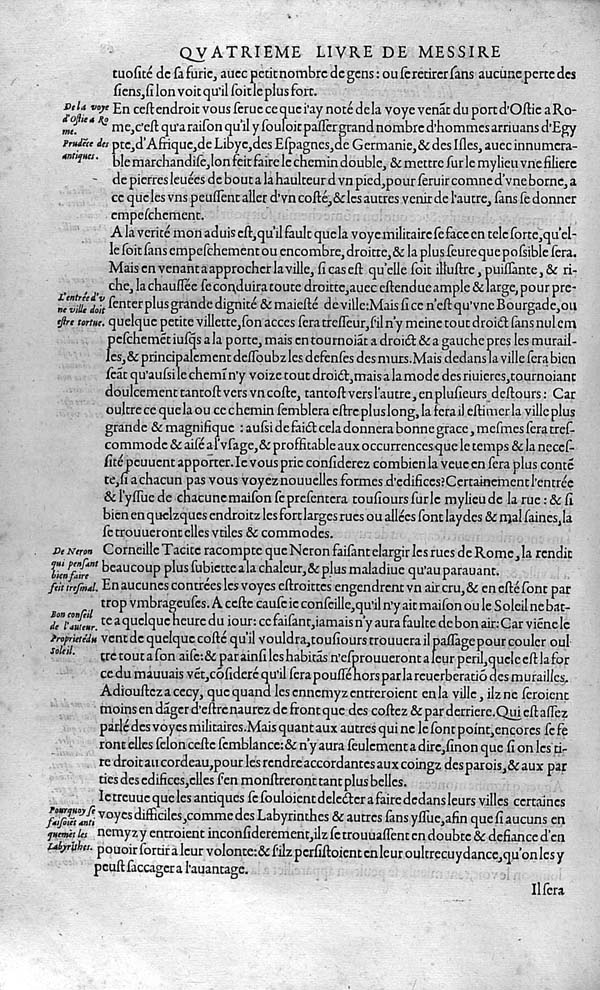 QVATRIEME LIVRE DE MESSIRE
tuosité de sa furie, auec petit nombre de gens: ou se retirer sans aucune perte des
siens, si lon voit qu'il soit le plus fort.
De la voye
d'Ostie a Ro
me.
Prudẽce des
antiques.
En cest endroit vous serue ce que i'ay noté de la voye venãt du port d'Ostie a Ro-
me, c'est qu'a raison qu'il y souloit passer grand nombre d'hommes arriuans d'Egy
pte, d'Afrique, de Libye, des Espagnes, de Germanie, & des Isles, auec innumera-
ble marchandise, lon feit faire le chemin double, & mettre sur le mylieu vne filiere
de pierres leuées de bout a la haulteur d vn pied, pour seruir comme d'vne borne, a
ce que les vns peussent aller d'vn costé, & les autres venir de l'autre, sans se donner
empeschement.
A la verité mon aduis est, qu'il fault que la voye militaire se face en tele sorte, qu'el-
le soit sans empeschement ou encombre, droitte, & la plus seure que possible sera.
Mais en venant a approcher la ville, si cas est qu'elle soit illustre, puissante, & ri-
che, la chaussée se conduira toute droitte, auec estendue ample & large, pour pre-
L'entrée d'v
ne ville doit
estre tortue.
senter plus grande dignité & maiesté de ville: Mais si ce n'est qu'vne Bourgade, ou
quelque petite villette, son acces sera tresseur, s'il n'y meine tout droict sans nul em
peschemẽt iusqs a la porte, mais en tournoiãt a droict & a gauche pres les murail-
les, & principalement dessoubz les defenses des murs. Mais dedans la ville sera bien
seãt qu'aussi le chemin n'y voize tout droict, mais a la mode des riuieres, tournoiant
doulcement tantost vers vn coste, tantost vers l'autre, en plusieurs destours: Car
oultre ce que la ou ce chemin semblera estre plus long, la fera il estimer la ville plus
grande & magnifique: aussi de faict cela donnera bonne grace, mesmes sera tres-
commode & aisé a l'vsage, & proffitable aux occurrences que le temps & la neces-
sité peuuent apporter. Ie vous prie considerez combien la veue en sera plus contẽ
te, si a chacun pas vous voyez nouuelles formes d'edifices? Certainement l'entrée
& l'yssue de chacune maison se presentera tousiours sur le mylieu de la rue: & si
bien en quelzques endroitz les fort larges rues ou allées sont laydes & mal saines, la
se trouueront elles vtiles & commodes.
De Neron
qui pensant
bien faire
feit tresmal.
Corneille Tacite racompte que Neron faisant elargir les rues de Rome, la rendit
beaucoup plus subiette a la chaleur, & plus maladiue qu'au parauant.
En aucunes contrées les voyes estroittes engendrent vn air cru, & en esté sont par
trop vmbrageuses. A ceste cause ie conseille, qu'il n'y ait maison ou le Soleil ne bat-
Bon conseil
de l'auteur.
Proprieté du
Soleil.
te a quelque heure du iour: ce faisant, iamais n'y aura faulte de bon air: Car viẽne le
vent de quelque costé qu'il vouldra, tousiours trouuera il passage pour couler oul
tre tout a son aise: & par ainsi les habitãs n'esprouueront a leur peril, quele est la for
ce du mauuais vẽt, cõsideré qu'il sera poussé hors par la reuerberatiõ des murailles.
Adioustez a cecy, que quand les ennemyz entreroient en la ville, ilz ne seroient
moins en dãger d'estre naurez de front que des costez & par derriere. Qui est assez
parlé des voyes militaires. Mais quant aux autres qui ne le sont point, encores se fe
ront elles selon ceste semblance: & n'y aura seulement a dire, sinon que si on les ti-
re droit au cordeau, pour les rendre accordantes aux coingz des parois, & aux par
ties des edifices, elles s'en monstreront tant plus belles.
Ie treuue que les antiques se souloient delecter a faire dedans leurs villes certaines
Pourquoy se
faisoiẽt anti
quemẽt les
Labyrithes.
voyes difficiles, comme des Labyrinthes & autres sans yssue, afin que si aucuns en
nemyz y entroient inconsiderement, ilz se trouuassent en doubte & defiance d'en
pouoir sortir a leur volonte: & s'ilz persistoient en leur oultrecuydance, qu'on les y
peust saccager a l'auantage.
Il sera